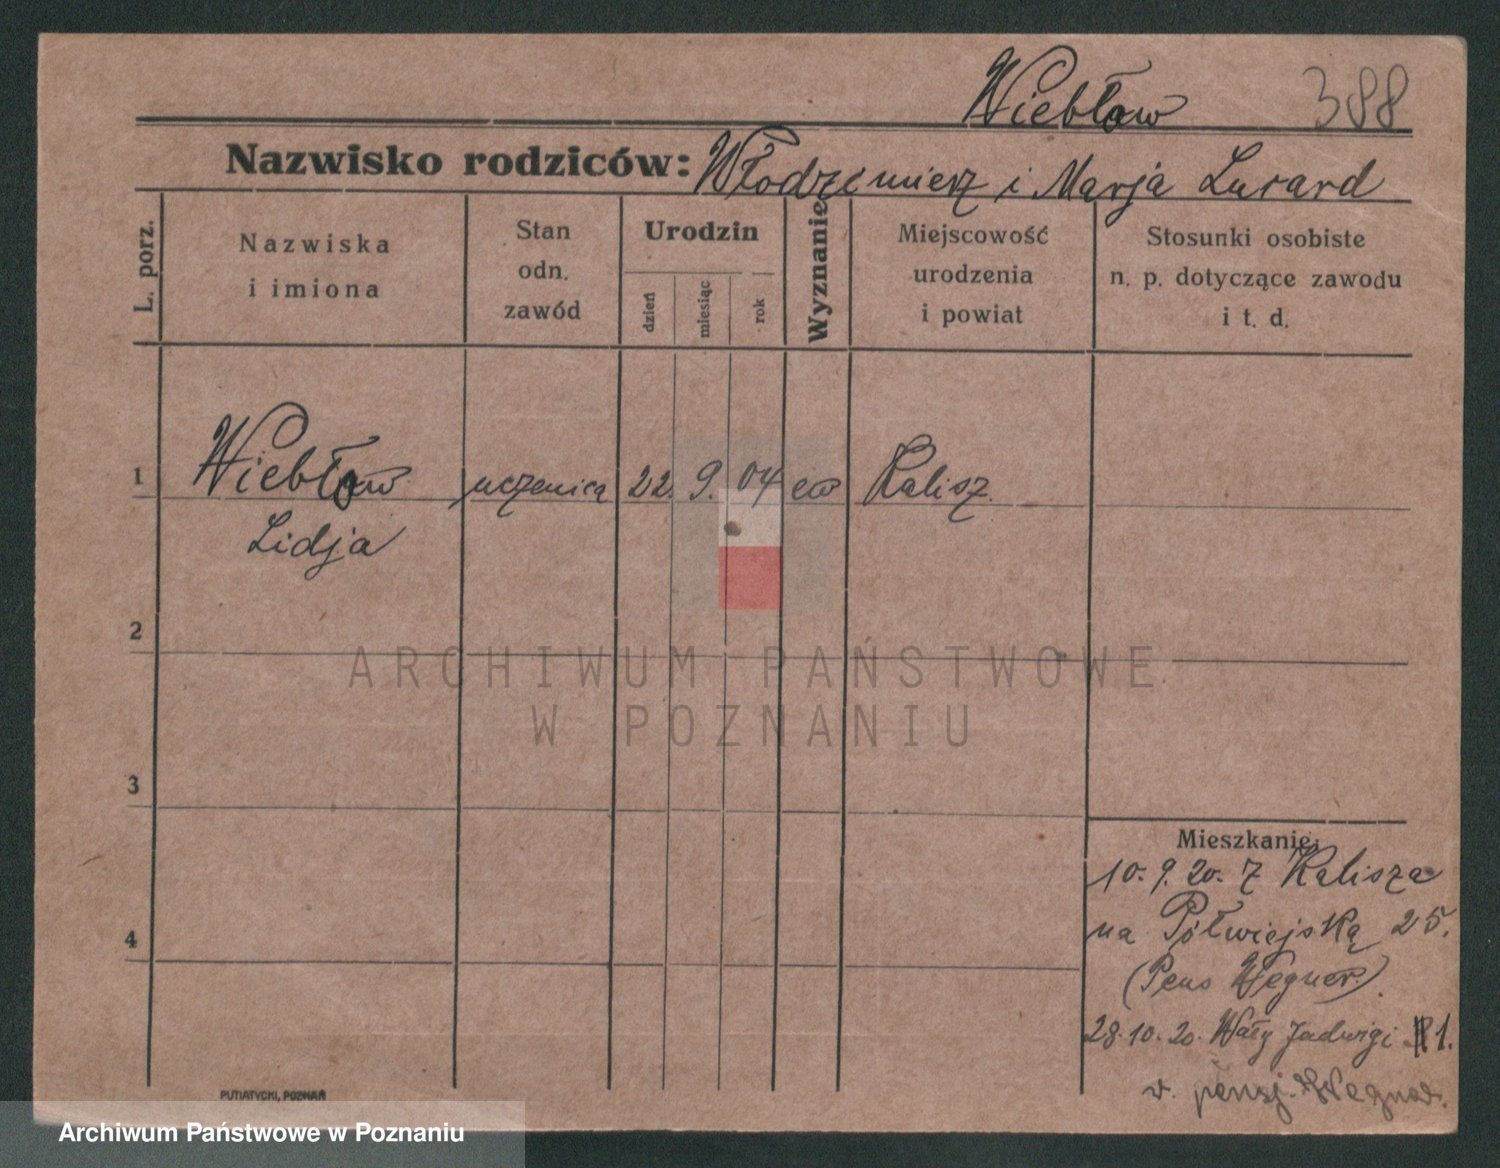 Wiebłow 388
Nazwisko rodziców: Włodzimierz i Marja Lurard
L. porz.
Nazwiska
i imiona
Stan
odn.
zawód
Urodzin
dzień
miesiąc
rok
Wyznanie
Miejscowość
urodzenia
i powiat
Stosunki osobiste
n. p. dotyczące zawodu
i t. d.
1 Wiebłow uczenica 22. 9. 04 ew Kalisz.
Lidja
2
ARCHIWUM PAŃSTWOWE
W POZNANIU
3
4
Mieszkanie:
10. 9. 20. z Kalisza
na Półwiejską 25.
(Pens Wegner)
28. 10. 20. Wały Jadwigi 1.
v. pensj. Wegner.
PUTIATYCKI, POZNAŃ
Archiwum Państwowe w Poznaniu